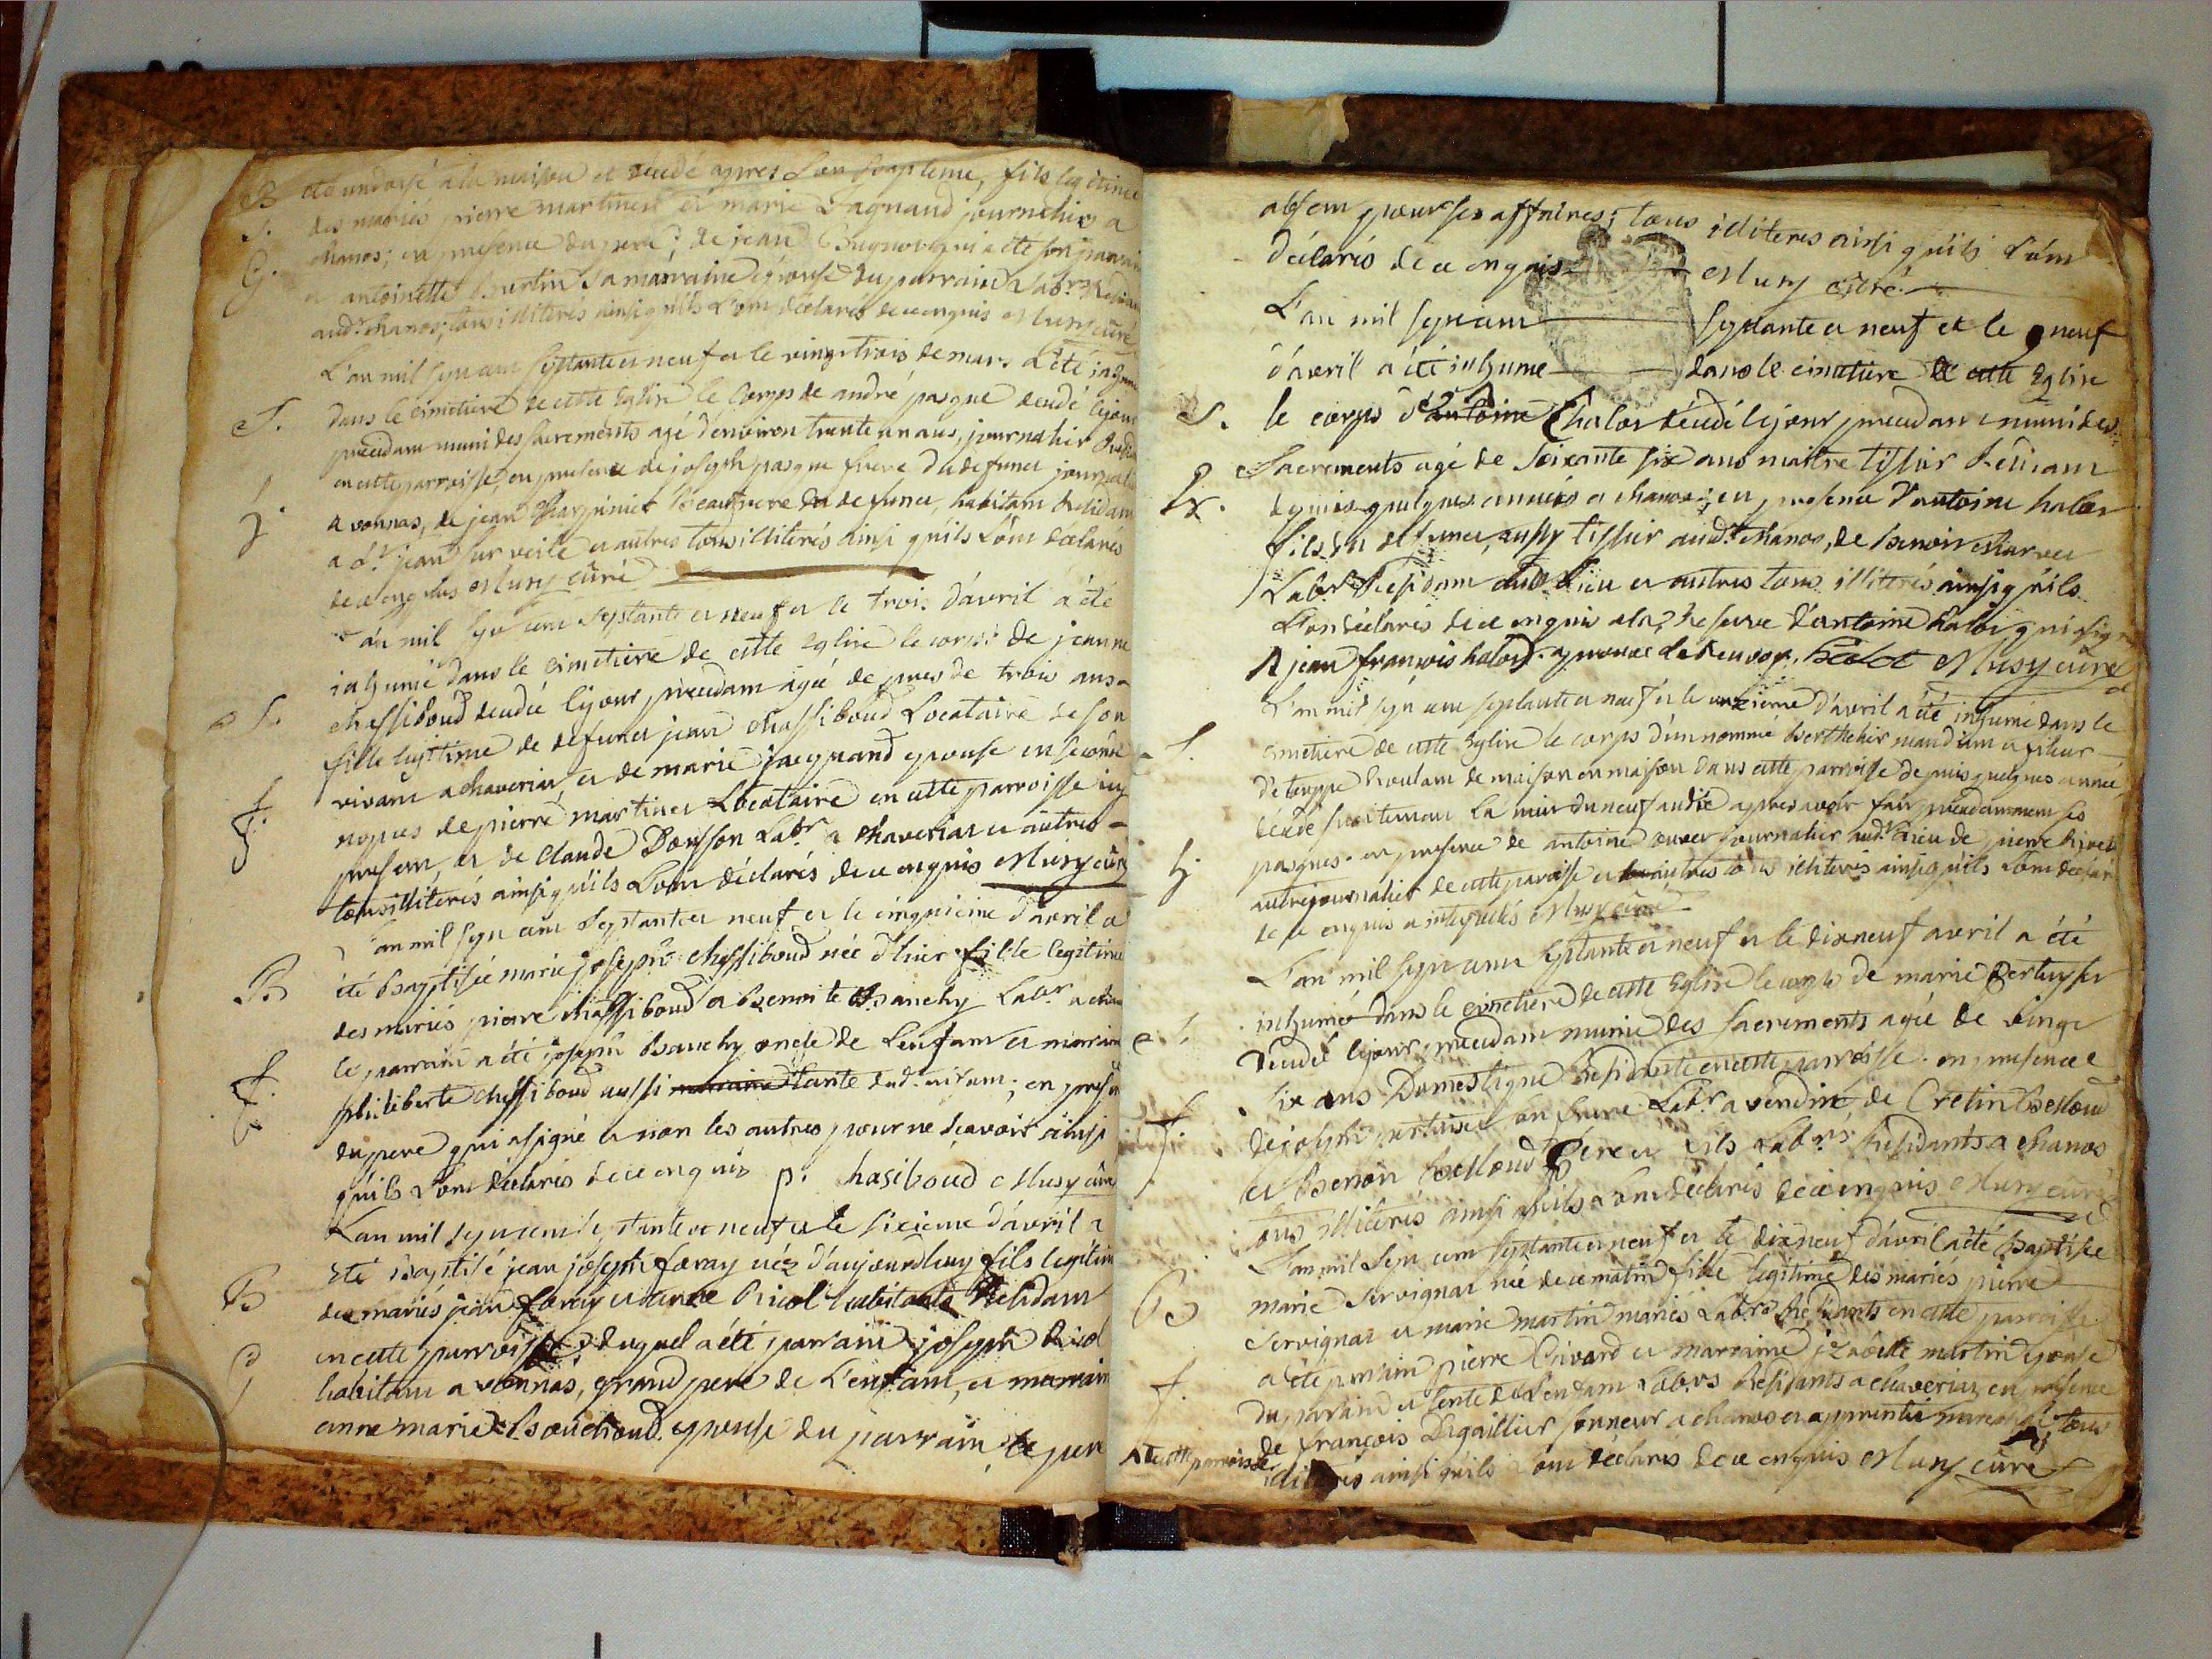 B été ondoyé a la maison et decedé apres son baptême, fils legitime
S. des mariés pierre martinet et marie Lagnaud journalier a
G. chanos; en presence du pere; de jean qui a été son parrain
et antoinette bertin sa marraine epouse du parrain Labr
audt chanos; tous illiterés ainsi quils L'ont declarés de ce enquis Musy curé
L'an mil sept cent septante et neuf et le vingt trois de mars a été inhumé
S. dans le cimetiere de cette Eglise le Corps de andré pasque decedé le jour
precedant muni des sacrements agé denviron trente un ans, journalier
en cette parroisse, en presence de joseph pasque frere du defunct journalier
j. a vonnas, de jean Charpiniet Beaufrere du defunct, habitant Residant
a St jean sur veile et autres tous illiterés ainsi quils L'ont declarés
de ce enquis Musy curé
L'an mil sept cent septante et neuf et le trois d'avril a été
inhumé dans le cimetiere de cette eglise le corps de jeanne
S. chassiboud decedée le jour precedant agée de pres de trois ans
fille legitime de defunct jean chassiboud Locataire de son
vivant a chaveriat, et de marie jacquand epouse en seconde
f. nopces de pierre martinet Locataire en cette parroisse icy
present, et de claude Boisson Labr a chaveriat et autres
tous illiterés ainsi quils L'ont déclarés de ce enquis Musy curé
L'an mil sept cent septante et neuf et le cinquieme d'avril a
B été baptisée marie josephe chassiboud née d'hier fille legitime
des mariés pierre chassiboud et benoite Bauchy Labr a
le parrain a été joseph Bauchy oncle de L'enfant et marraine
f. philiberte chassiboud aussi tante dud. enfant; en presence
du pere qui a signé et non les autres pour ne sçavoir ainsi
quils L'ont declarés de ce enquis p. hasiboud Musy curé
L'an mil sept cent septante et neuf et le sixieme d'avril a
été baptisé jean joseph foray né d'aujourdhuy fils legitime
B des mariés jean foray et anne Ricol habitants Residant
en cette parroisse, duquel a été parrain joseph Ricol
habitant a vonnas, grand pere de L'enfant, et marraine
anne marie Bouchoud epouse du parrain, le pere
absent pour ses affaires; tous illiteres ainsi quils L'ont
déclarés de ce enquis Musy curé
L'an mil sept cent septante et neuf et le neuf
d'avril a été inhumé dans le cimetiere de cette Eglise
S. le corps d'antoine halos décédé le jour precedant muni des
Sacrements agé de soixante six ans maitre tissier Residant
depuis quelques années a chanos; en presence d'antoine halos
fils du defunct, aussy tissier audt chanos, de benoit
Labr Residant aud. Lieu et autres tous illiterés ainsi quils
L'ont déclarés de ce enquis a la reserve d'antoine halos qui a signé
jean françois halos. aprouvé le Renvoy. halot Musy curé
L'an mil sept cent septante et neuf et le onzieme d'avril a été inhumé dans le
S. cimetiere de cette Eglise le corps d'un nommé berthelier mandiant et fileur
d'etouppe Roulant de maison en maison dans cette parroisse depuis quelques années
décédé la nuit du neuf au dix apres avoir fait precedemment ses
pasques. en presence de antoine journalier audt Lieu de pierre
autre journalier de cette paroisse et autres tous illiterés ainsi quils L'ont declaré
de ce enquis et interpellés Musy curé
L'an mil sept cent septante et neuf et le dixneuf avril a été
S. inhumée dans le cimetiere de cette Eglise le corps de marie pertuyset
decedé le jour precedant munie des sacrements agée de vingt
six ans Domestique Residante en cette parroisse. en presence
f. de joseph pertuiset son frere Labr a vendin, de Cretin belloud
et benoit belloud Pere et fils Labrs Residants a chanos
tous illiterés ainsi quils L'ont déclarés de ce enquis Musy curé
L'an mil sept cent septante et neuf et le dixneuf d'avril a été baptisée
B marie servignat née de ce matin fille legitime des mariés pierre
servignat et marie martin mariés Labrs Residants en cette parroisse
f. a été parrain pierre Rivard et marraine izabelle martin epouse
du parrain et tente de L'enfant Labrs Residants a chaveriat, en presence
de françois Degaillier sonneur a chanos et apprentis marechal, tous
de cette parroisse
illiterés ainsi quils L'ont déclarés de ce enquis Musy curé